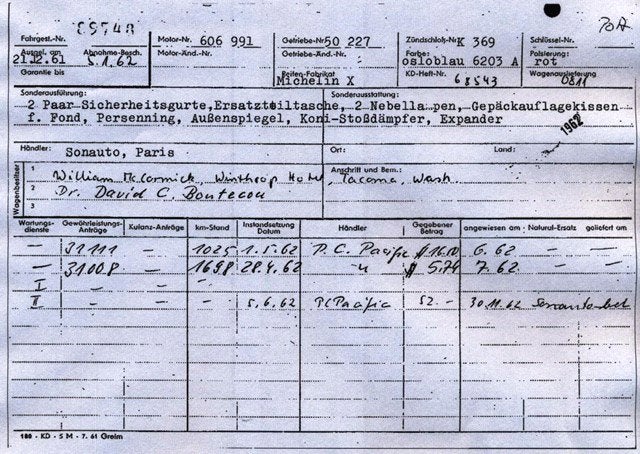 89548
Fahrgest.-Nr. Motor-Nr. 606 991 Getriebe-Nr. 50 227 Zündschloß-Nr. K 369 Schlüssel-Nr.
Ausgel. am 21.12.61 Abnahme-Besch. 5.1.62 Motor-Änd.-Nr. Getriebe-Änd.-Nr. Farbe: osloblau 6203 A Polsterung: rot
Garantie bis Reifen-Fabrikat Michelin X KD-Heft-Nr. 68543 Wagenauslieferung 0811
Sonderausführung: Sonderausstattung:
2 Paar Sicherheitsgurte, Ersatzteiltasche, 2 Nebellampen, Gepäckauflagekissen
f. Fond, Persenning, Außenspiegel, Koni-Stoßdämpfer, Expander
1962
Händler: Sonauto, Paris Ort: Land:
Wagenbesitzer 1 William McCormick, Winthrop Hotel, Tacoma, Wash. Anschrift und Bem.:
2 Dr. David C. Bontecou
3
Wartungsdienste Gewährleistungs-Anträge Kulanz-Anträge km-Stand Instandsetzung Datum Händler Gegebener Betrag angewiesen am Natural-Ersatz geliefert am
— 31111 — 1025 1.5.62 P.C. Pacific $ 16.10 6.62 — —
— 31008 — 1698 28.4.62 " $ 5.74 7.62 — —
I — — —
II — — 5.6.62 PC Pacific 52.- 30.11.62
180 · KD · 5 M · 7. 61 Greim